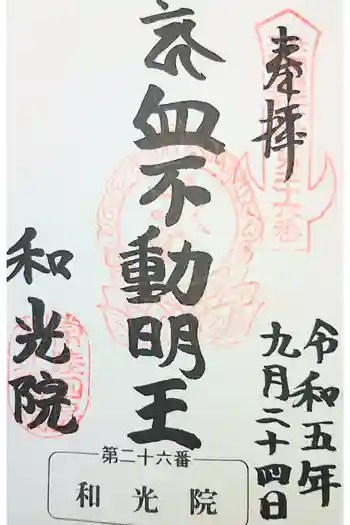 奉拝
血不動明王
和光院
令和五年
九月二十四日
第二十六番
和光院